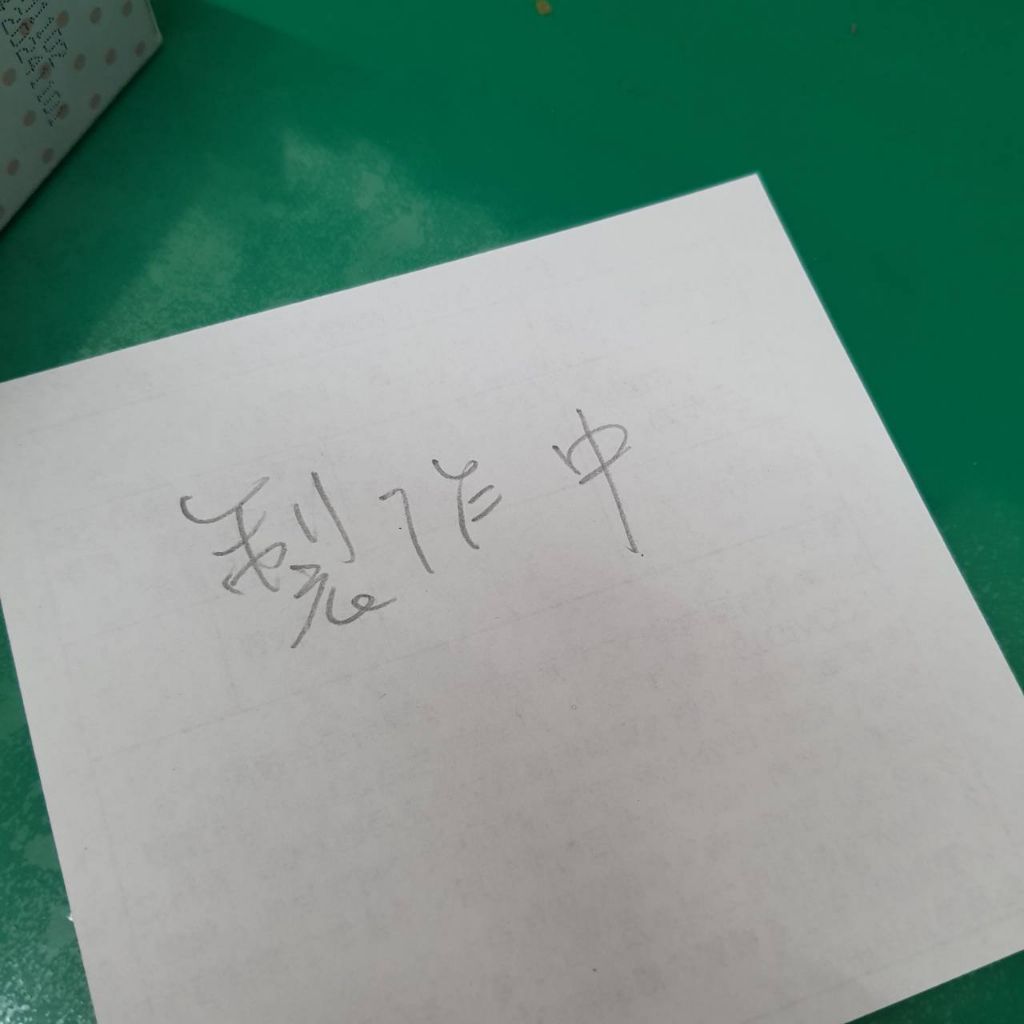 製作中